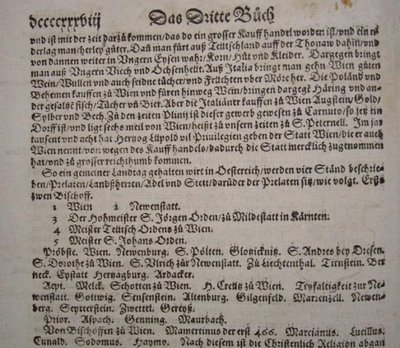 dccccxxxviij Das Dritte Bůch
und ist mit der zeit darzů kommen/das do ein grosser Kauff handel worden ist/und ein ni
derlag mancherley güter. Dañ man fürt auß Teütschland auff der Thonaw dahin/und
von dannen weiter in Ungern Eysen wahr/Korn/Hüt und Kleider. Dargegen bringt
man auß Ungern Viech und Ochsenheüt. Auß Italia bringt man gehn Wien gůten
Wein/Wullen und auch seiden tücher und Früchten uber Mörcher. Die Poland und
Behemen kauffen zů Wien und füren hinweg Wein/bringen dargegẽ Häring und an-
der gesaltzẽ fisch/Tücher uñ Bier. Aber die Italiäner kauffen zů Wien Augstein/Gold/
Sylber und Bech. Zů den zeiten Plinij ist dieser gewerb gewesen zů Carnuto/so jetz ein
Dorff ist/und ligt sechs meil von Wien/heißt zů unsern zeiten zů S. Peternell. Im jar
tausent und acht hat Hertzog Lüpold vil Privilegien geben der Statt Wien/die er auch
Wien nennt/von wegen des Kauff handels/dadurch die Statt mercklich zůgenommen
hat/und zů grosser reichthumb kommen.
So ein gemeiner Landtag gehalten wirt in Oesterreich/werden vier Ständ beschrie-
ben/Prelaten/Landßherren/Adel und Stett/darüder der Prelaten sind/wie volgt. Erst
zwen Bischoff.
1 Wien 2 Newenstatt.
3 Der Hohmeister S. Jörgen Orden/zů Mildestatt in Kärnten.
4 Meister Teütsch Ordens zů Wien.
5 Meister S. Johans Orden.
Pröbste. Wien. Newenburg. S. Pölten. Glosßicknitz. S. Andres bey Dresen.
S. Dorothe zů Wien. S. Ulrich zůr Newenstatt. Zů kierchenthal. Tirnstein. Ber
neck. Eystatt Hertzagburg. Ardacker.
Aept. Melck. Schotten zů Wien. H. Creütz zů Wien. Tryfaltigkeit zůr Ne-
wenstatt. Gottwig. Senßenstein. Altenburg. Gilgenfeld. Marienzell. Newen-
berg. Seyterstein. Zwettel. Gerewß.
Prior. Aspach. Genning. Maurbach.
Von Bischoffen zů Wien. Mamertinus der erst 466. Marcianus. Lucillus.
Cunald. Sodomus. Haymo. Nach diesem ist die Christenlich Religion abgan